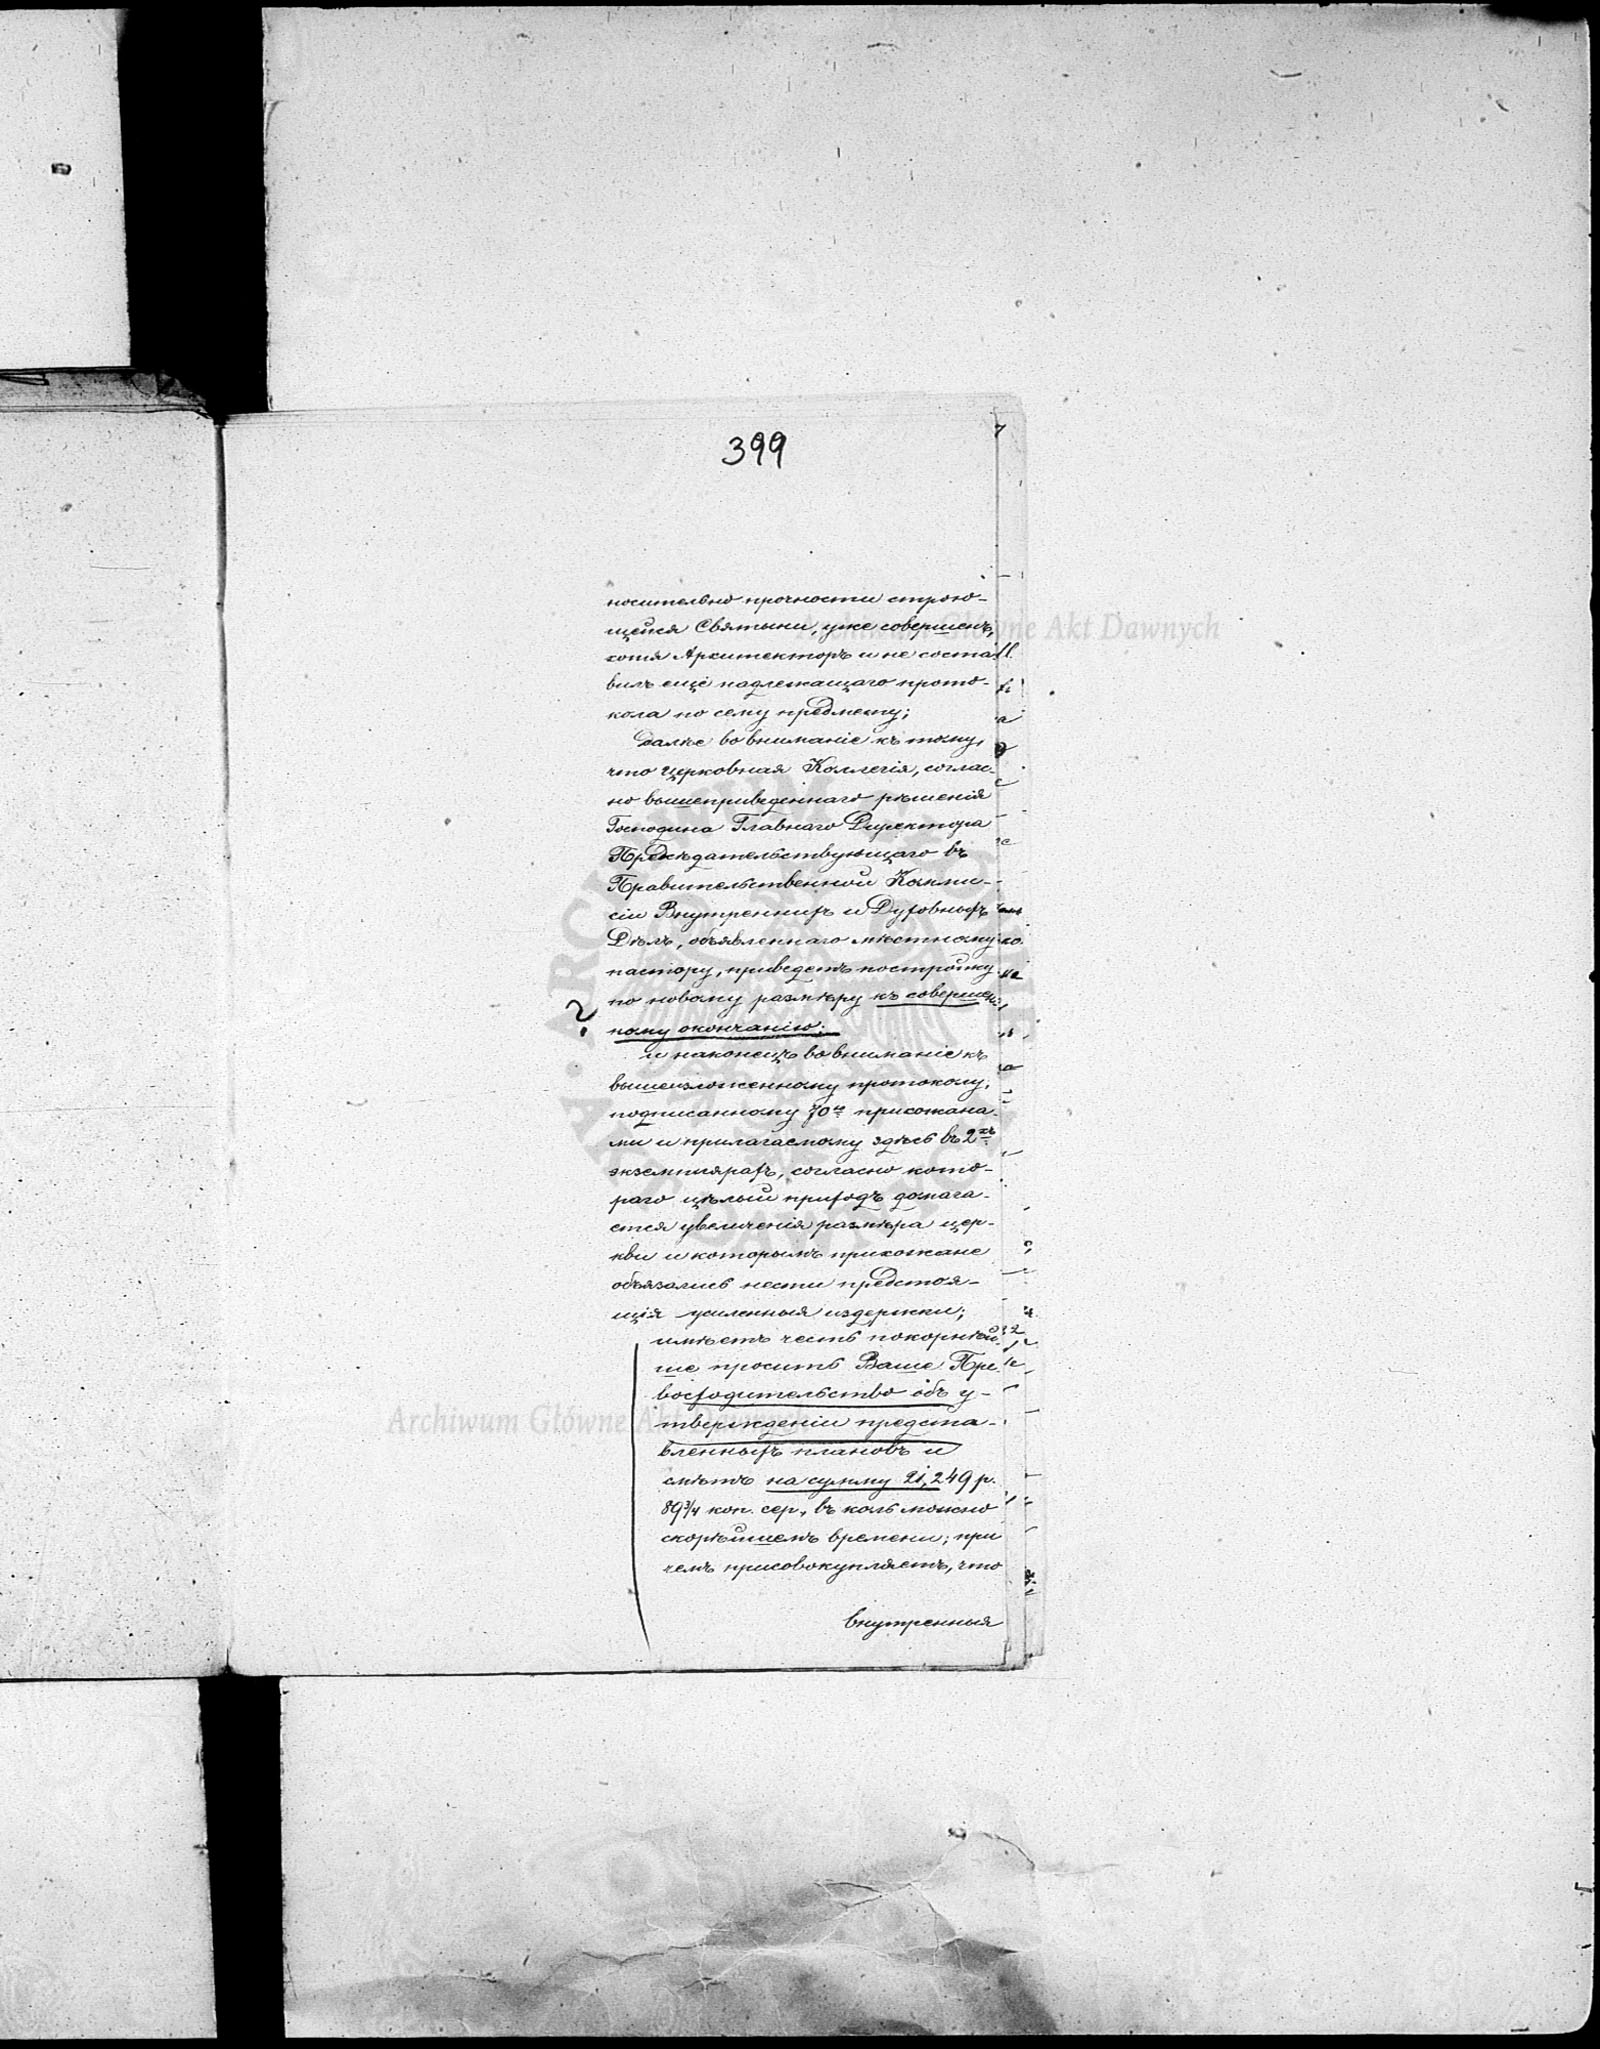 399
носительно прочности строю-
щейся Святыни, уже совершенъ,
хотя Архитекторъ и не соста-
вилъ еще надлежащаго прото-
кола по сему предмету;
далѣе во вниманіе къ тому,
что Церковная Коллегія, соглас-
но вышеприведеннаго рѣшенія
Господина Главнаго Директора
Предсѣдательствующаго въ
Правительственной Комми-
сіи Внутреннихъ и Духовныхъ
Дѣлъ, объявленнаго мѣстному
пастору, приведетъ постройку
по новому размѣру къ совершен-
? ному окончанію;
и наконецъ во вниманіе къ
вышеизложенному протоколу,
подписанному 70ю прихожана-
ми и прилагаемому здѣсь въ 2хъ
экземплярахъ, согласно кото-
раго цѣлый приходъ домага-
ется увеличенія размѣра цер-
кви и которымъ прихожане
обязались нести предстоя-
щія усиленныя издержки;
имѣетъ честь покорнѣй-
ше просить Ваше Пре-
восходительство объ у-
твержденіи предста-
вленныхъ плановъ и
смѣтъ на сумму 21,249 р.
89 3/4 коп. сер., въ коль можно
скорѣйшемъ времени; при
чемъ присовокупляетъ, что
внутренныя
Archiwum Główne Akt Dawnych
Archiwum Główne Akt Dawnych